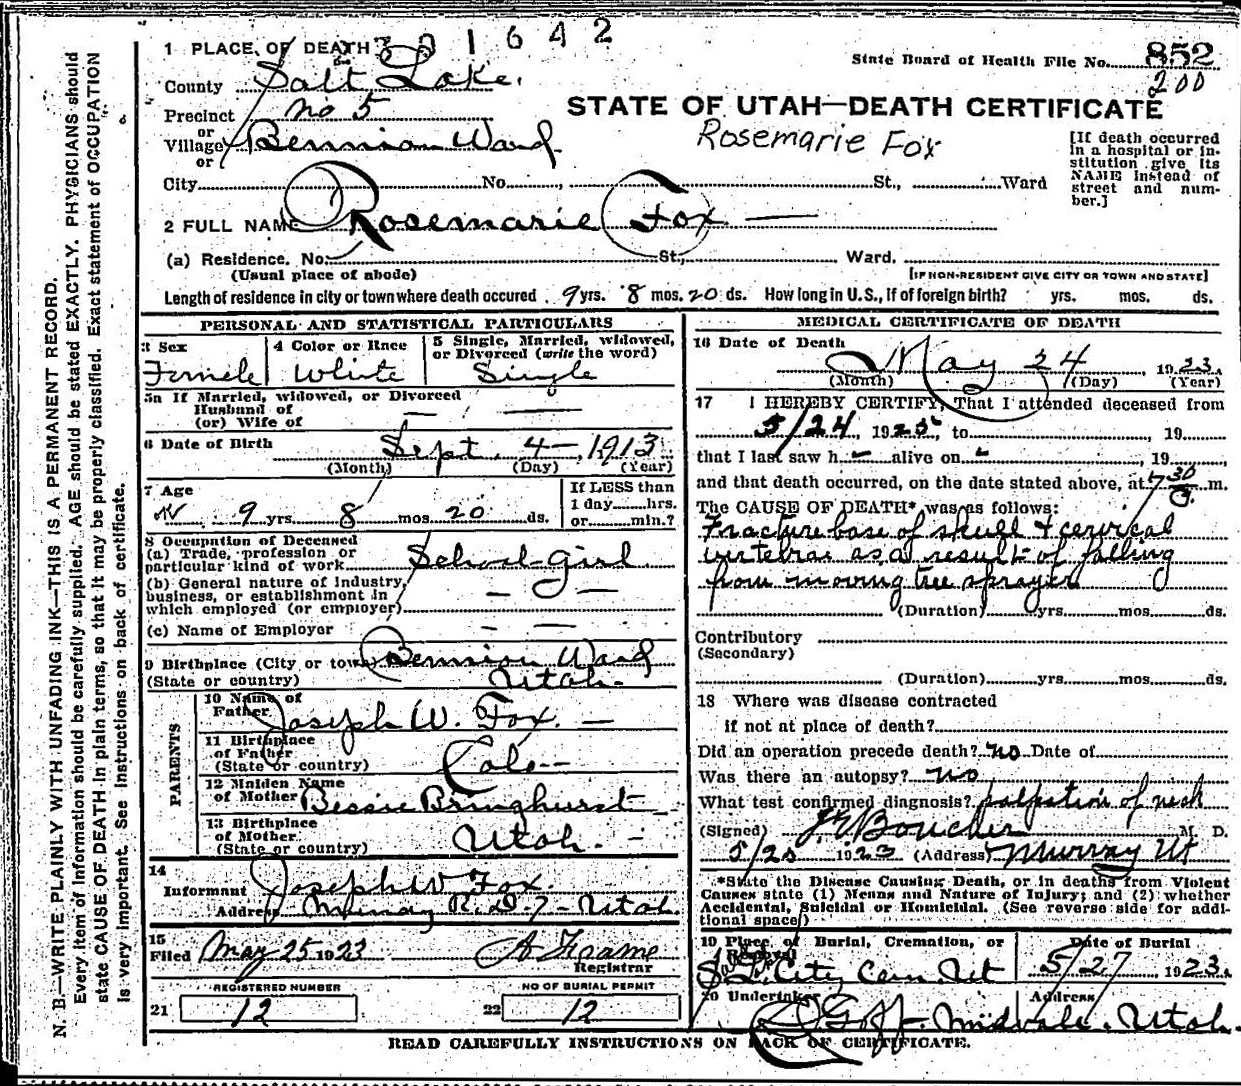 N. B.—WRITE PLAINLY WITH UNFADING INK—THIS IS A PERMANENT RECORD.
Every item of information should be carefully supplied. AGE should be stated EXACTLY. PHYSICIANS should
state CAUSE OF DEATH in plain terms, so that it may be properly classified. Exact statement of OCCUPATION
is very important. See instructions on back of certificate.
1 PLACE OF DEATH 1 6 4 2
State Board of Health File No. 852
200
County Salt Lake.
Precinct no 5
or
Village Bennion Ward
or
STATE OF UTAH—DEATH CERTIFICATE
Rosemarie Fox
[If death occurred
in a hospital or in-
stitution give its
NAME instead of
street and num-
ber.]
City No. St., Ward
2 FULL NAME Rosemarie Fox —
(a) Residence. No. St., Ward.
(Usual place of abode) [IF NON-RESIDENT GIVE CITY OR TOWN AND STATE]
Length of residence in city or town where death occured 9 yrs. 8 mos. 20 ds. How long in U.S., if of foreign birth? yrs. mos. ds.
PERSONAL AND STATISTICAL PARTICULARS
3 Sex
Female
4 Color or Race
White
5 Single, Married, widowed,
or Divorced (write the word)
Single
5a If Married, widowed, or Divorced
Husband of
(or) Wife of — —
6 Date of Birth Sept. 4—, 1913
(Month) (Day) (Year)
7 Age
9 yrs. 8 mos. 20 ds.
If LESS than
1 day hrs.
or min.?
8 Occupation of Deceased
(a) Trade, profession or
particular kind of work School-girl
(b) General nature of Industry,
business, or establishment in
which employed (or employer) — —
(c) Name of Employer — —
9 Birthplace (City or town) Bennion Ward
(State or country) Utah.
PARENTS
10 Name of
Father Joseph W. Fox. —
11 Birthplace
of Father
(State or country) Colo—
12 Maiden Name
of Mother Bessie Bringhurst
13 Birthplace
of Mother
(State or country) Utah. —
14
Informant Joseph W Fox.
Address Murray R. D. 7 - Utah.
15
Filed May 25 1923 A Frame
Registrar
REGISTERED NUMBER
21 12
NO OF BURIAL PERMIT
22 12
MEDICAL CERTIFICATE OF DEATH
16 Date of Death
May 24, 1923.
(Month) (Day) (Year)
17 I HEREBY CERTIFY, That I attended deceased from
5/24 192, to , 19
that I last saw h alive on , 19 ,
and that death occurred, on the date stated above, at 7 30 m.
The CAUSE OF DEATH* was as follows:
Fracture base of skull & cervical
vertebrae as a result of falling
from moving tree sprayer
(Duration) yrs. mos. ds.
Contributory
(Secondary)
(Duration) yrs. mos. ds.
18 Where was disease contracted
if not at place of death?
Did an operation precede death? no Date of
Was there an autopsy? no
What test confirmed diagnosis? palpation of neck
(Signed) Boucher M. D.
5/25 1923 (Address) Murray Ut
*State the Disease Causing Death, or in deaths from Violent
Causes state (1) Means and Nature of Injury; and (2) whether
Accidental, Suicidal or Homicidal. (See reverse side for addi-
tional space)
19 Place of Burial, Cremation, or
Removal
S. L. City Cem. Ut
Date of Burial
5/27 1923.
20 Undertaker Goff - Address Midvale. Utah.
READ CAREFULLY INSTRUCTIONS ON BACK OF CERTIFICATE.